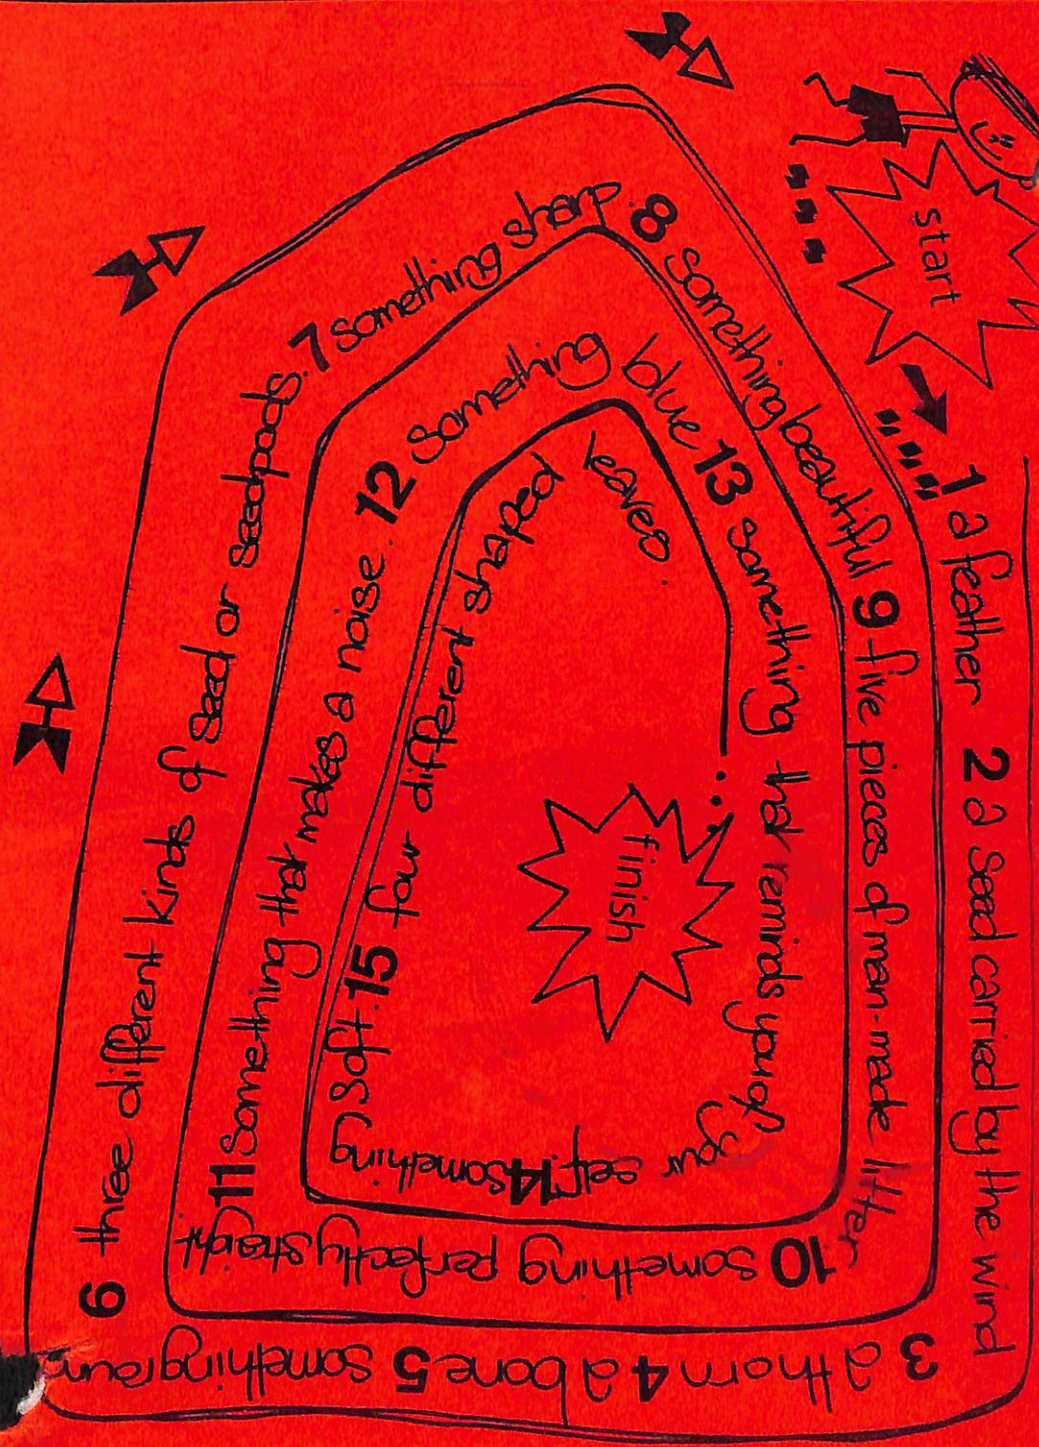 start
1 a feather 2 a seed carried by the wind
3 a thorn 4 a bone 5 something roun
6 three different kinds of seed or seedpods.
7 something sharp.
8 something beautiful 9 five pieces of man-made litter
10 something perfectly straight
11 something that makes a noise.
12 something blue
13 something that reminds you of your self.
14 something soft.
15 four different shaped leaves.
finish